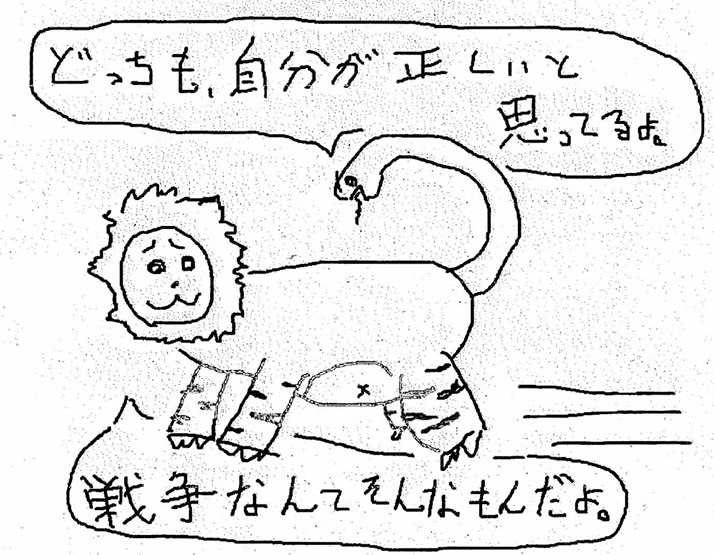 どっちも、自分が正しいと
思ってるよ。
戦争なんてそんなもんだよ。